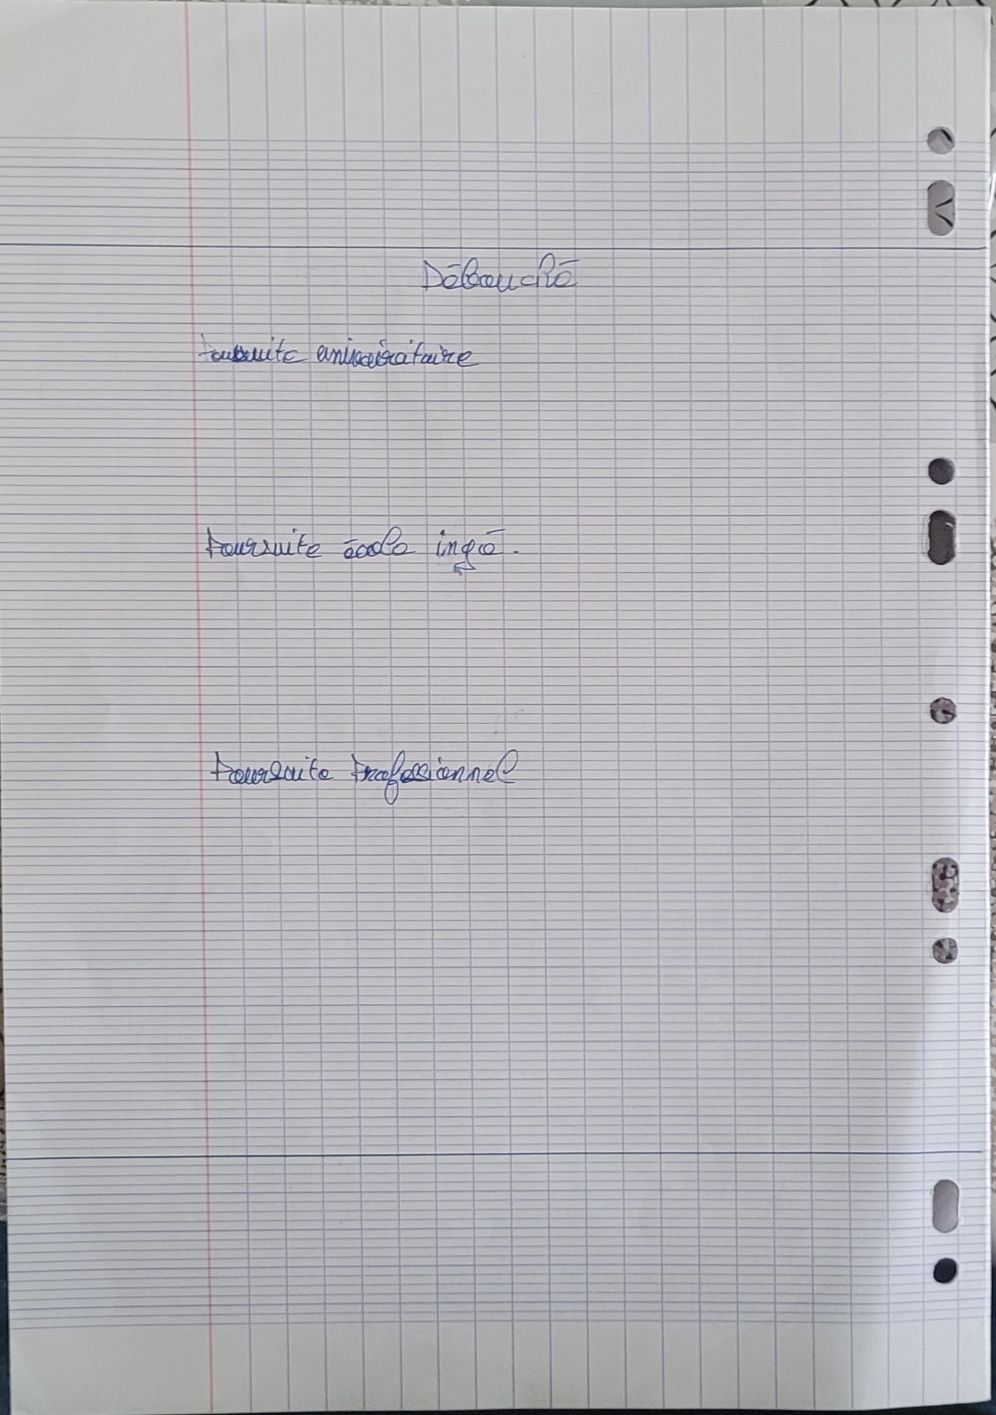 Débouché
Poursuite universitaire
Poursuite école ingé.
Poursuite Professionnel